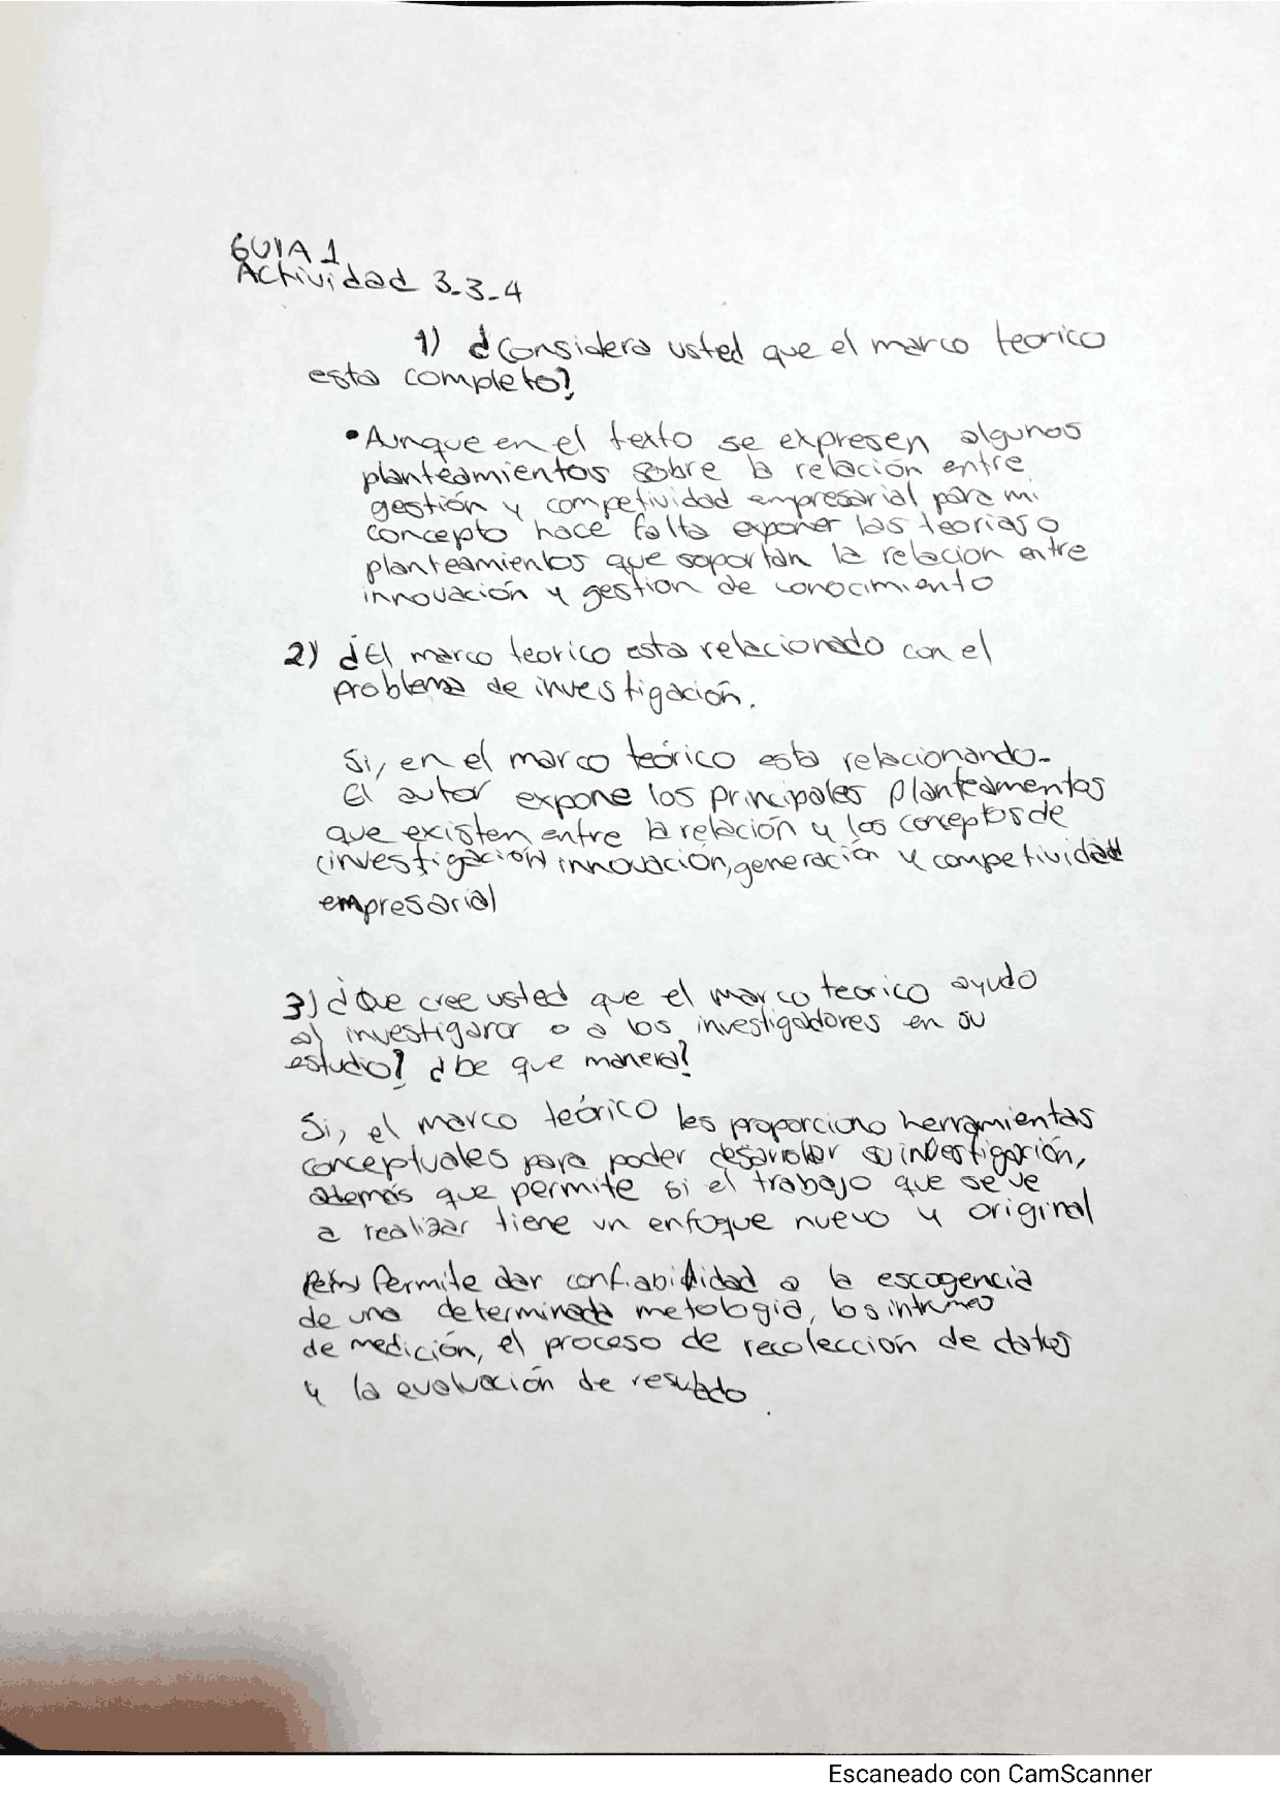 GUIA 1
Actividad 3-3-4
1) ¿Considera usted que el marco teorico
esta completo?
• Aunque en el texto se expresen algunos
planteamientos sobre la relación entre
gestión y competividad empresarial para mi
concepto hace falta exponer las teorias o
planteamientos que soportan la relacion entre
innovación y gestion de conocimiento
2) ¿El marco teorico esta relacionado con el
problema de investigación.
Si, en el marco teórico esta relacionando.
El autor expone los principales planteamentos
que existen entre la relación y los conceptos de
(investigación innovación, generación y competividad
empresarial
3) ¿Que cree usted que el marco teorico ayudo
al investigaror o a los investigadores en su
estudio? ¿De que manera?
Si, el marco teórico les proporciono herramientas
conceptuales para poder desarrollar su investigación,
además que permite si el trabajo que se ve
a realizar tiene un enfoque nuevo y original
Permite dar confiabilidad a la escogencia
de una determinada metologia, los intrumeo
de medición, el proceso de recolección de datos
y la evaluación de resultado
Escaneado con CamScanner